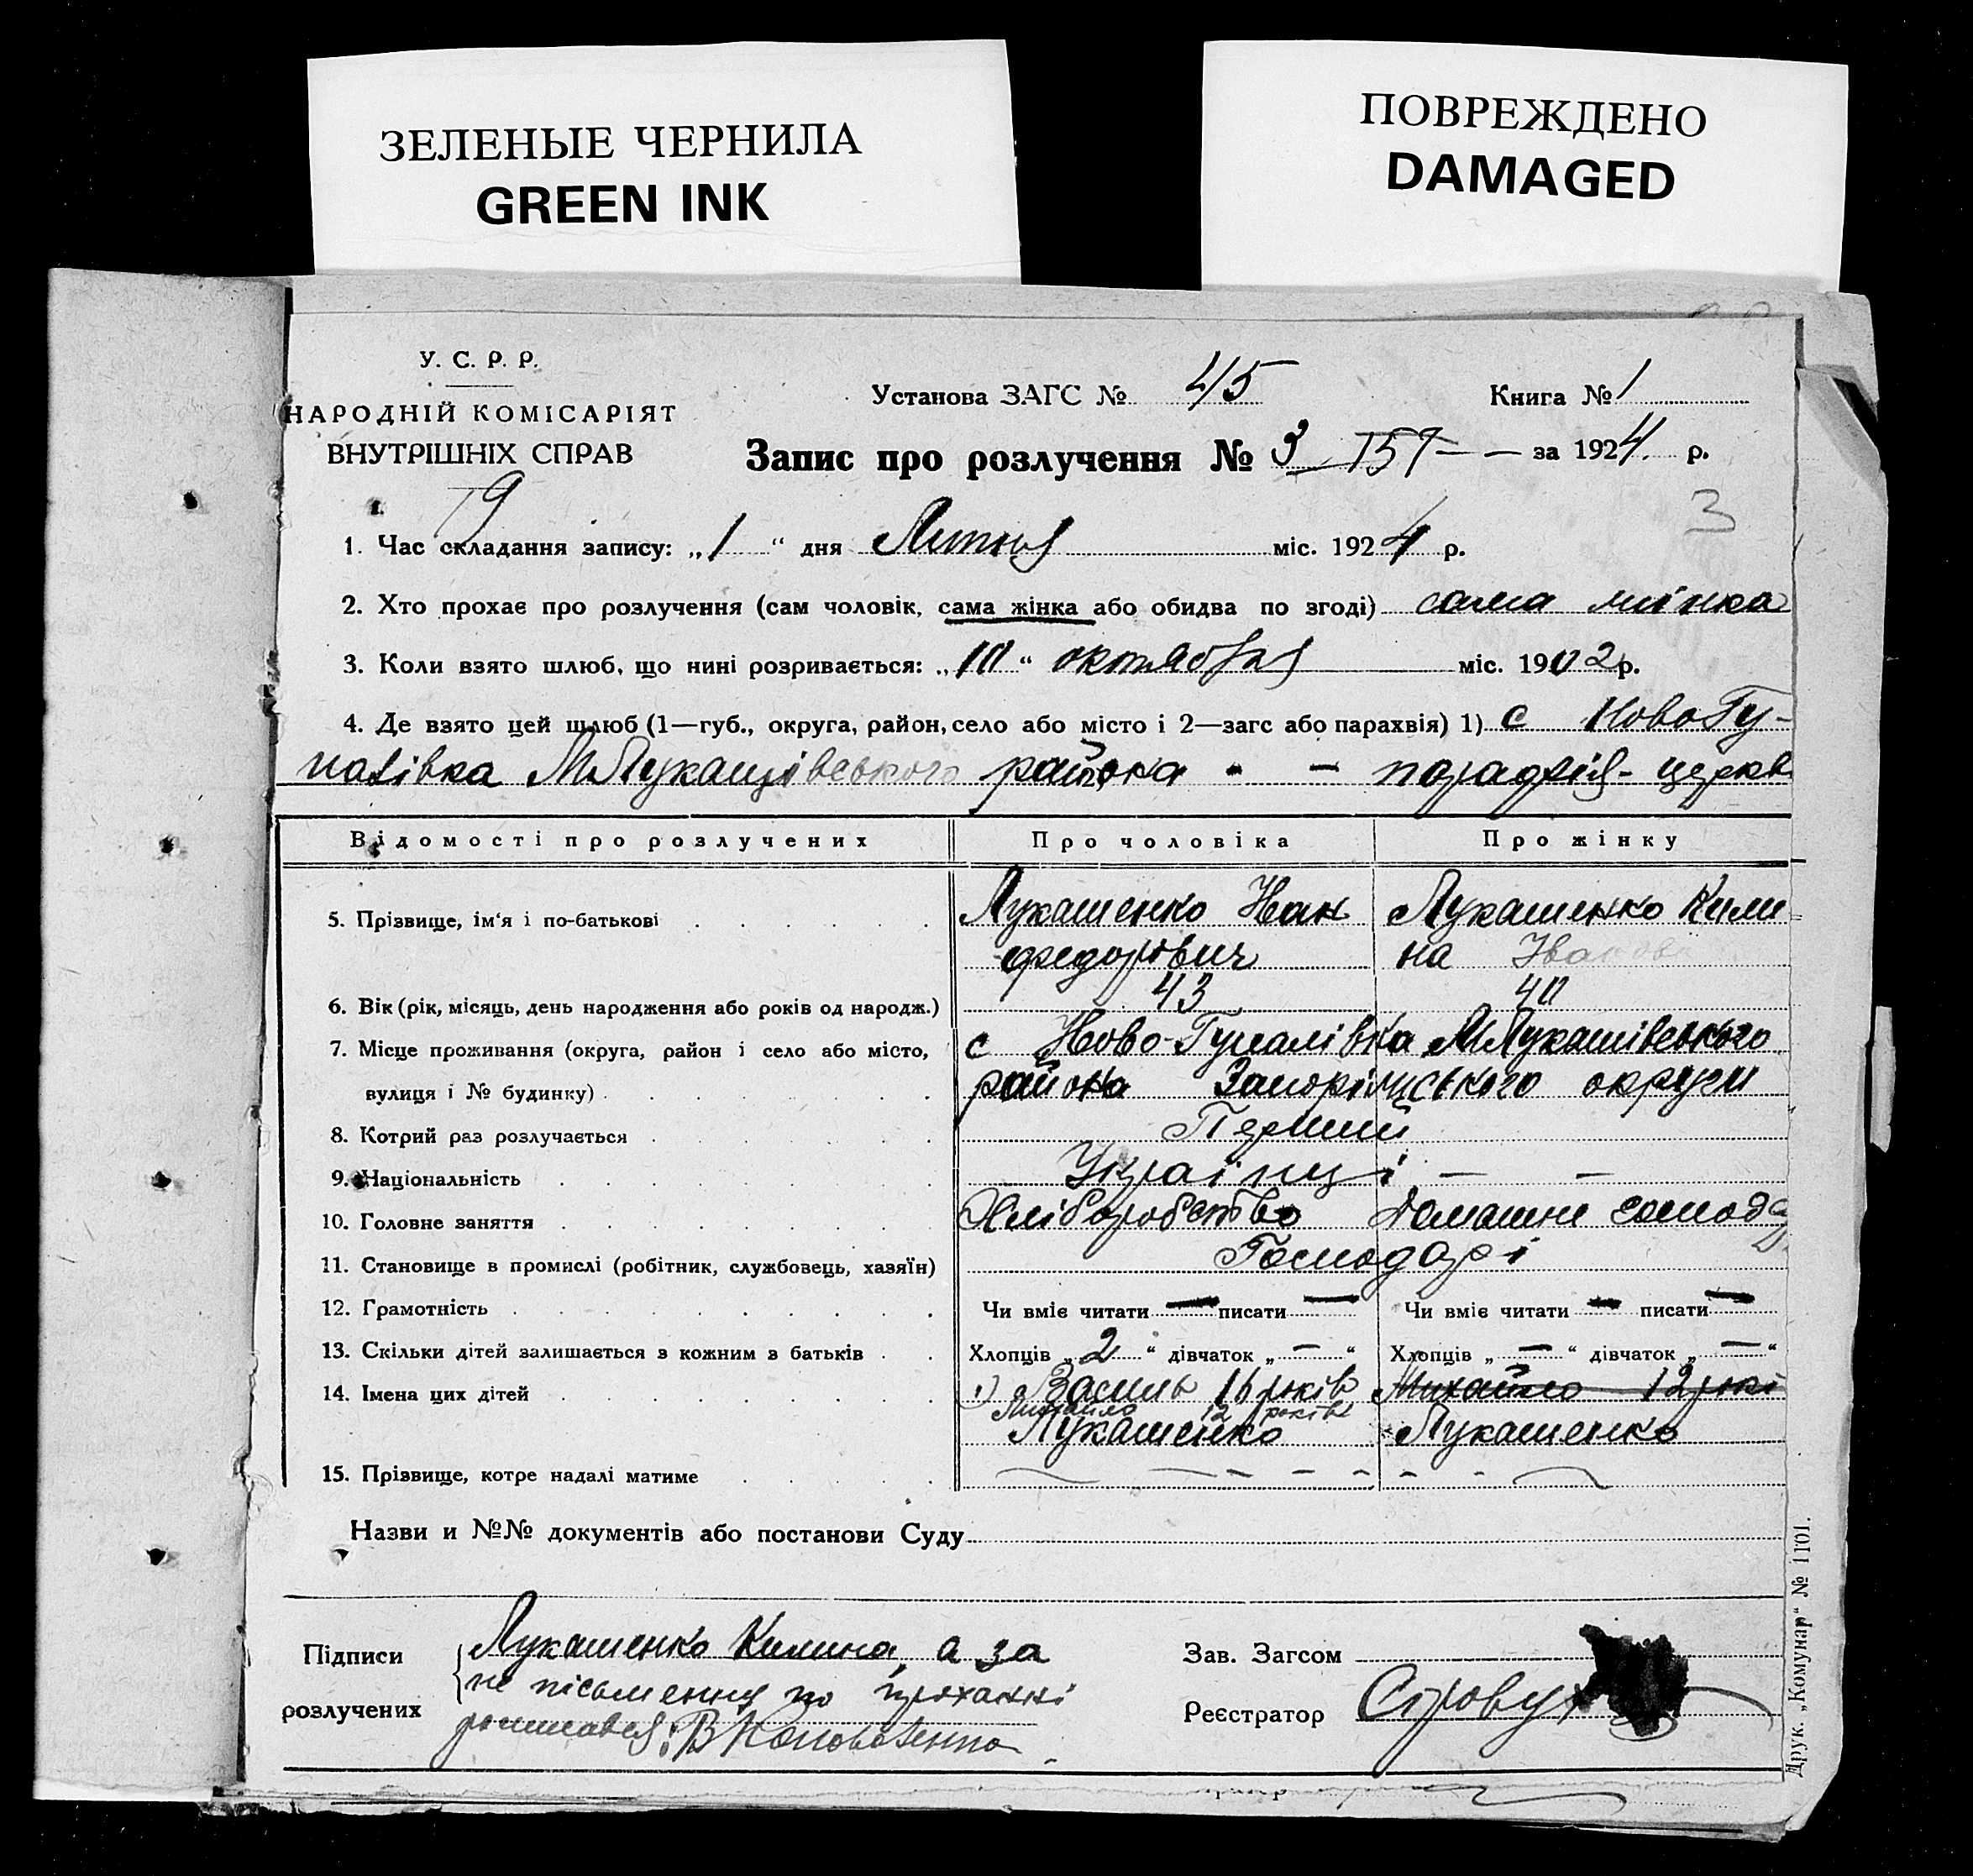 ЗЕЛЕНЫЕ ЧЕРНИЛА
GREEN INK
ПОВРЕЖДЕНО
DAMAGED
У. С. Р. Р.
НАРОДНІЙ КОМІСАРІЯТ
ВНУТРІШНІХ СПРАВ
Установа ЗАГС № 45
Книга № 1
Запис про розлучення № 3 за 1924 р.
9
3
1. Час складання запису: „1“ дня Лютня міс. 1924 р.
2. Хто прохає про розлучення (сам чоловік, сама жінка або обидва по згоді) сама жінка
3. Коли взято шлюб, що нині розривається: „10“ октября міс. 1902 р.
4. Де взято цей шлюб (1—губ., округа, район, село або місто і 2—загс або парахвія) 1) с Ново Гу-
палівка МЛукашівського района - - парафія - церкв
Відомості про розлучених Про чоловіка Про жінку
5. Прізвище, ім'я і по-батькові Лукашенко Иван Лукашенко Кили
федорович на Іванові
6. Вік (рік, місяць, день народження або років од народж.) 43 40
7. Місце проживання (округа, район і село або місто, с Ново-Гупалівка МЛукашівського
вулиця і № будинку) района Запоріжського округи
8. Котрий раз розлучається Перший
9. Національність Українці - -
10. Головне заняття Хліборобство Домашне господ
11. Становище в промислі (робітник, службовець, хазяїн) Господарі
12. Грамотність Чи вміє читати — писати — Чи вміє читати — писати —
13. Скільки дітей залишається з кожним з батьків Хлопців „2“ дівчаток „—“ Хлопців „—“ дівчаток „—“
14. Імена цих дітей 1) Василь 16 років Михайло 12 рокі
Михайло 12 років
Лукашенко Лукашенко
15. Прізвище, котре надалі матиме
Назви и №№ документів або постанови Суду
Підписи розлучених
Лукашенко Килина, а за
не письменну по проханні
росписався: В Коноваленко
Зав. Загсом
Реєстратор
Друк. „Комунар“ № 1101.